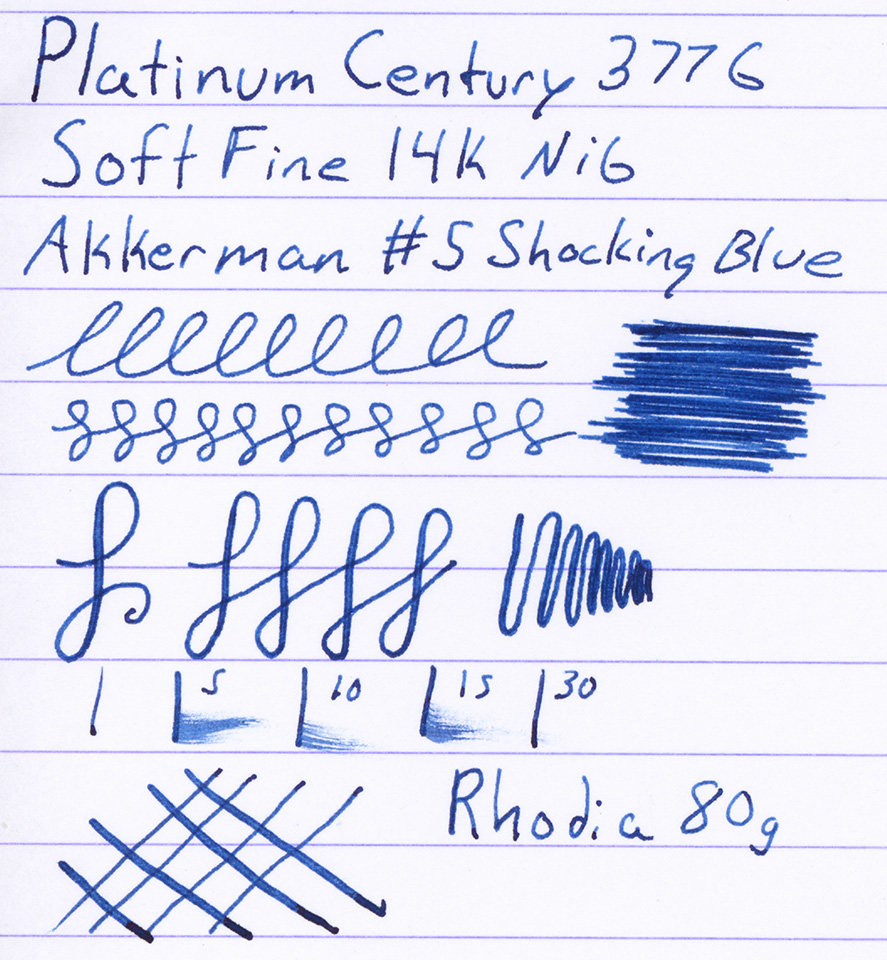 Platinum Century 3776
Soft Fine 14K Nib
Akkerman #5 Shocking Blue
5 10 15 30
Rhodia 80g